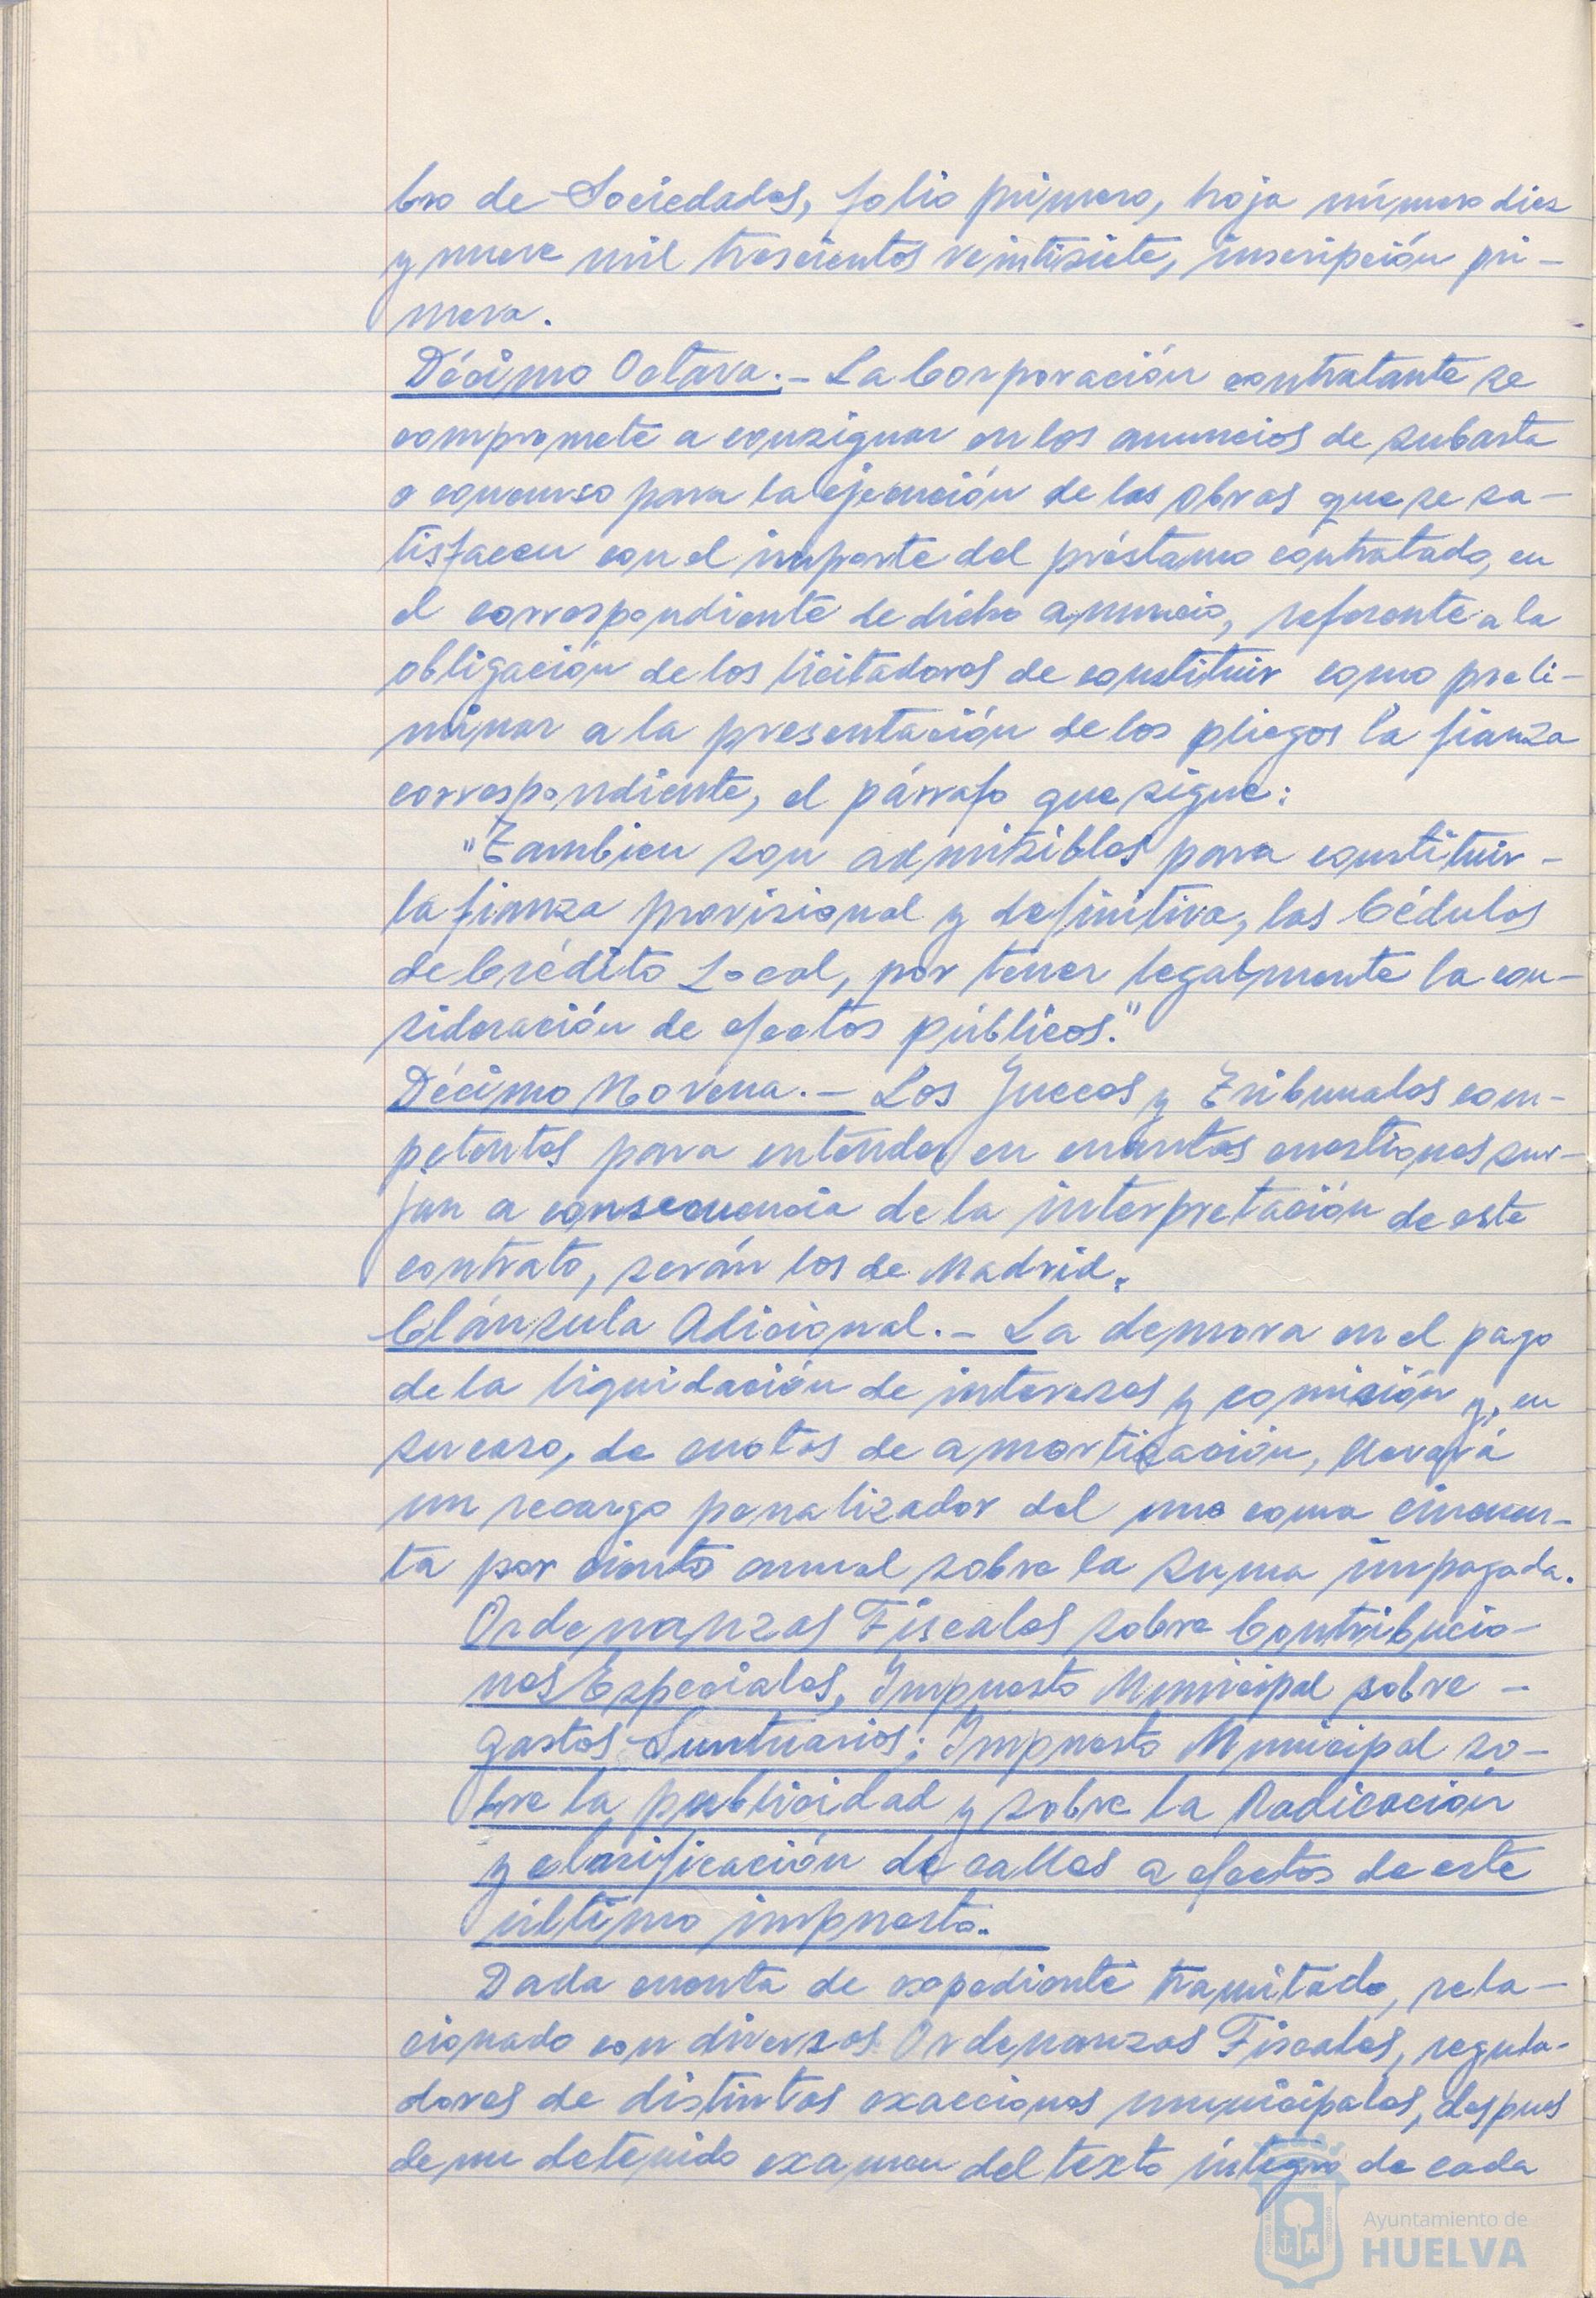 bro de Sociedades, folio primero, hoja número diez
y nueve mil trescientos veintisiete, inscripción pri-
mera.
Décimo Octava.- La Corporación contratante se
compromete a consignar en los anuncios de subasta
o concurso para la ejecución de las obras que se sa-
tisfacen con el importe del préstamo contratado, en
el correspondiente de dicho anuncio, referente a la
obligación de los licitadores de constituir como preli-
minar a la presentación de los pliegos la fianza
correspondiente, el párrafo que sigue:
"Tambien son admisibles para constituir -
la fianza provisional y definitiva, las Cédulas
de Crédito Local, por tener legalmente la con-
sideración de efectos públicos."
Décimo Novena.- Los Jueces y Tribunales com-
petentes para entender en cuantas cuestiones sur-
jan a consecuencia de la interpretación de este
contrato, serán los de Madrid.
Cláusula Adicional.- La demora en el pago
de la liquidación de intereses y comisión y, en
su caso, de cuotas de amortización, llevará
un recargo penalizador del uno coma cincuen-
ta por ciento anual sobre la suma impagada.
Ordenanzas Fiscales sobre Contribucio-
nes Especiales, Impuesto Municipal sobre -
gastos Suntuarios; Impuesto Municipal so-
bre la publicidad y sobre la Radicación
y clasificación de calles a efectos de este
último impuesto.
Dada cuenta de expediente tramitado, rela-
cionado con diversas Ordenanzas Fiscales, regula-
doras de distintas exacciones municipales, despues
de un detenido examen del texto íntegro de cada
Ayuntamiento de
HUELVA